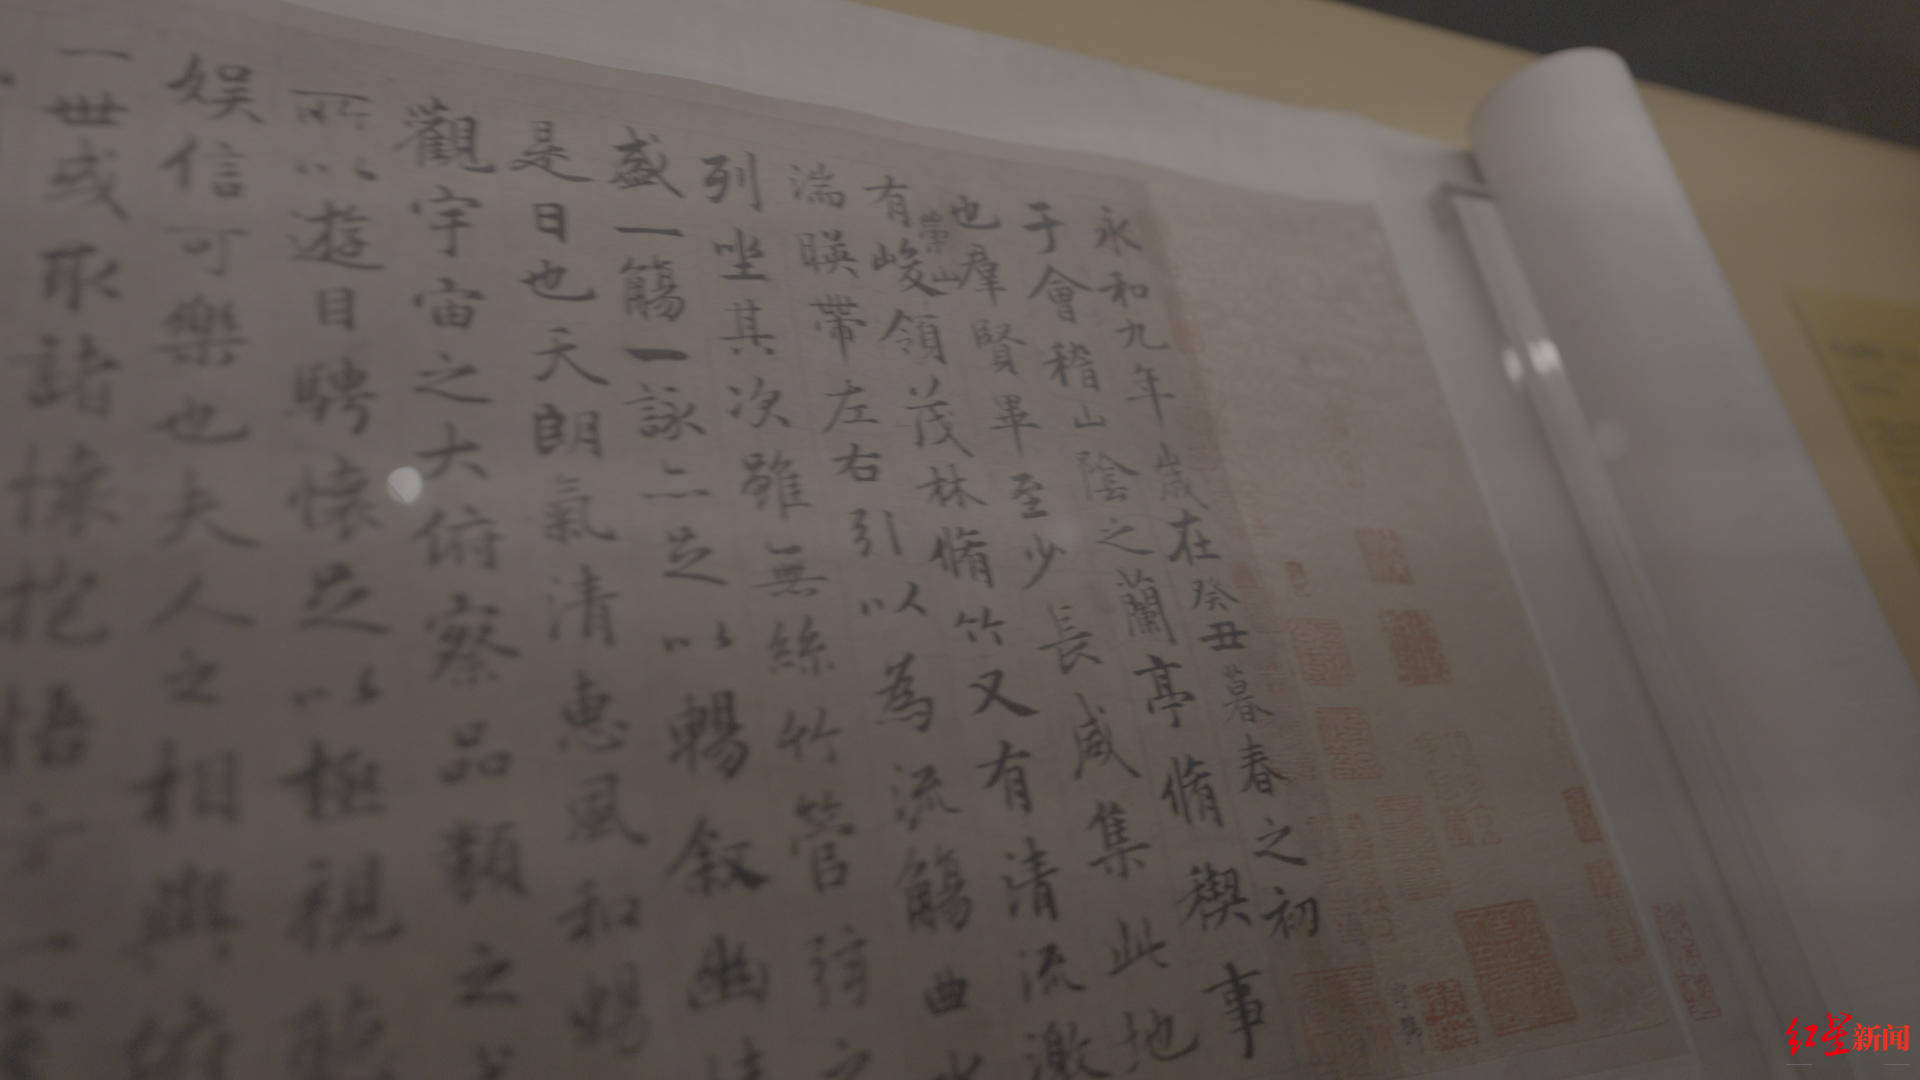 永和九年歲在癸丑暮春之初
于會稽山陰之蘭亭脩禊事
也羣賢畢至少長咸集此地
有崇山峻領茂林脩竹又有清流激
湍暎帶左右引以為流觴曲水
列坐其次雖無絲竹管弦之
盛一觴一詠亦足以暢叙幽情
是日也天朗氣清惠風和暢
觀宇宙之大俯察品類之盛
所以遊目騁懷足以極視聽
娛信可樂也夫人之相與俯
一世或取諸懷抱悟言一室
红星新闻